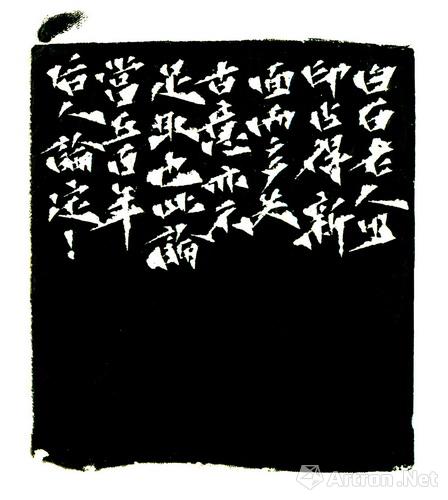 白石老人
印占得新
面而多失
古意亦不
足取也此論
當五百年
后人論定！
Artron.Net